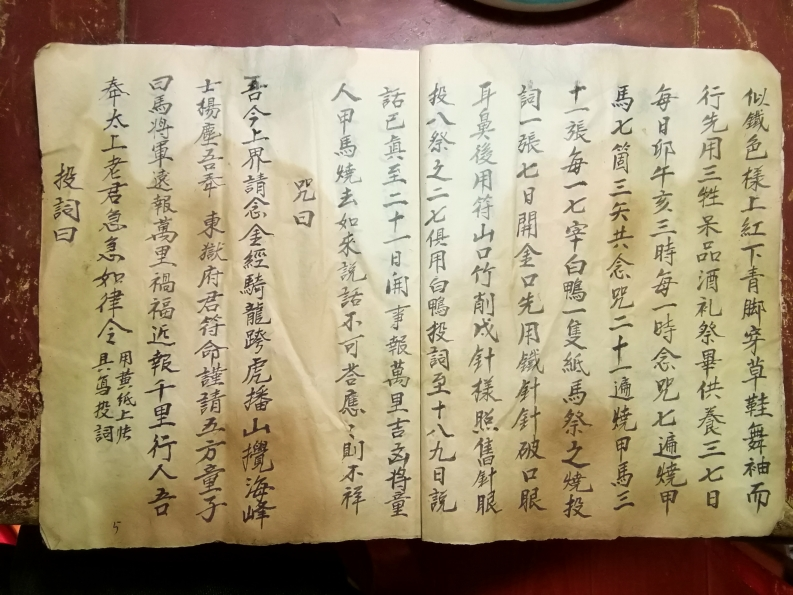 似鐵色樣上紅下青脚穿草鞋舞袖而
行先用三牲呆品酒礼祭畢供養三七日
每日卯午亥三時每一時念咒七遍燒甲
馬七箇三矢共念咒二十一遍燒甲馬三
十一張每一七宰白鴨一隻紙馬祭之燒投
詞一張七日開金口先用鐵針針破口眼
耳鼻後用符山口竹削成針樣照舊針眼
投八祭之二七俱用白鴨投詞至十八九日說
話已真至二十一日開事報萬里吉凶將童
人甲馬燒去如來說話不可答應〻則不祥
咒曰
吾今上界請念金經騎龍跨虎播山攪海峰
士揚塵吾奉 東嶽府君符命謹請五方童子
曰馬將軍遠報萬里禍福近報千里行人吾
奉太上老君急急如律令 用黃紙上
具寫投詞
投詞曰
5